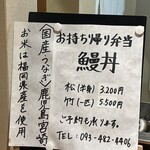 お持ち帰り弁当
鰻丼
松(半身) 3,200円
竹(一匹) 5,500円
ご予約も承ります。
TEL:093-482-4406
〈国産うなぎ〉鹿児島宮崎
お米は福岡県産を使用